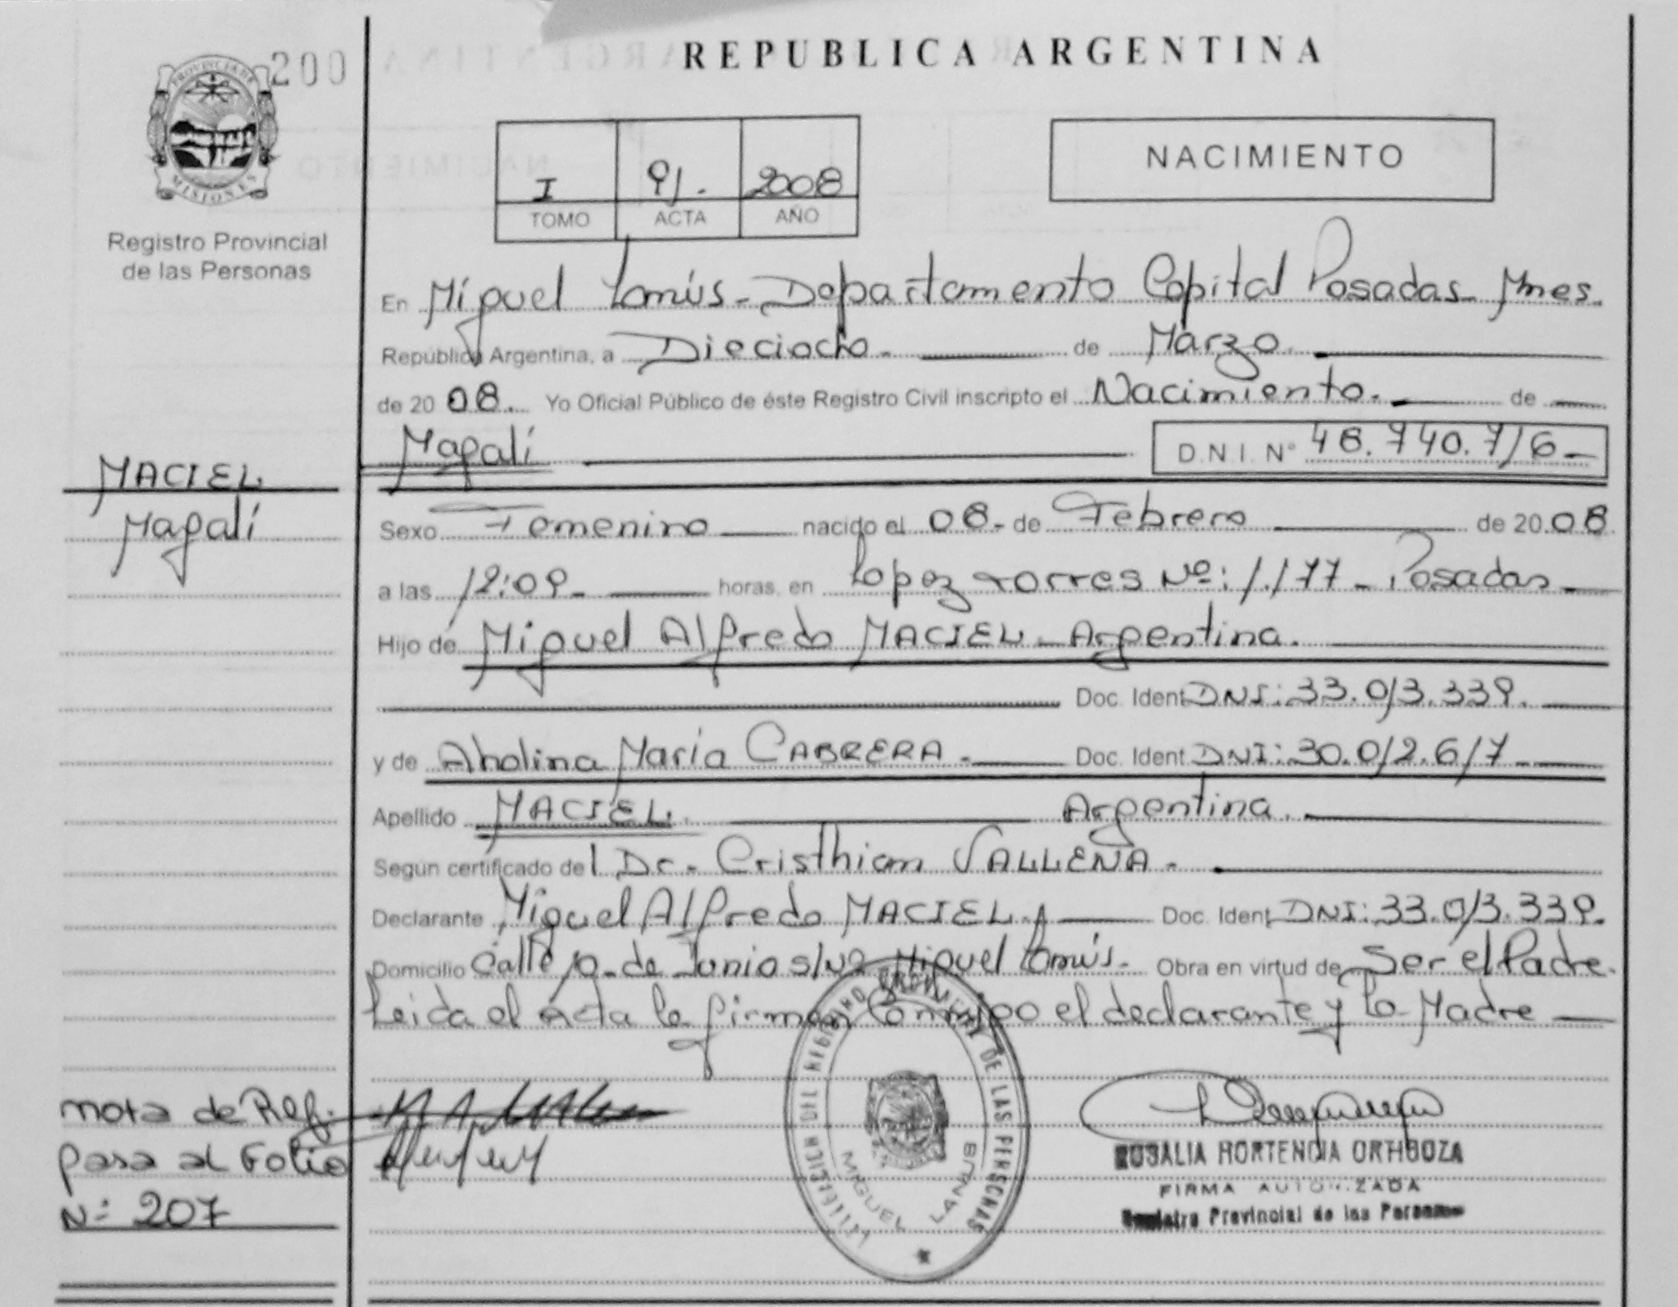 200
REPUBLICA ARGENTINA
PROVINCIA DE
MISIONES
Registro Provincial
de las Personas
I 91. 2008
TOMO ACTA AÑO
NACIMIENTO
En Miguel Lanús - Departamento Capital Posadas Mnes.
República Argentina, a Dieciocho. de Marzo.
de 20 08. Yo Oficial Público de éste Registro Civil inscripto el Nacimiento. de
Magalí D.N.I. Nº 48.740.716
MACIEL
Magalí
Sexo Femenino nacido el 08 - de Febrero de 20 08
a las 12:09 horas, en Lopez Torres Nº: 1.177 - Posadas
Hijo de Miguel Alfredo MACIEL - Argentina.
Doc. Ident DNI: 33.013.339.
y de María CABRERA. Doc. Ident DNI: 30.012.617
Apellido MACIEL. Argentina.
Según certificado del Dr. Cristhian VALLENA.
Declarante Miguel Alfredo MACIEL. Doc. Ident DNI: 33.013.339.
Domicilio Calle 10 de Junio s/nº Miguel Lanús. Obra en virtud de Ser el Padre.
Leida el Acta la firman Conmigo el declarante y la Madre
nota de Ref.
pasa al Folio
N: 207
DEL REGISTRO PROVINCIAL DE LAS PERSONAS
MIGUEL LANUS
ROSALIA HORTENCIA
FIRMA AUTORIZADA
Registro Provincial de las Personas